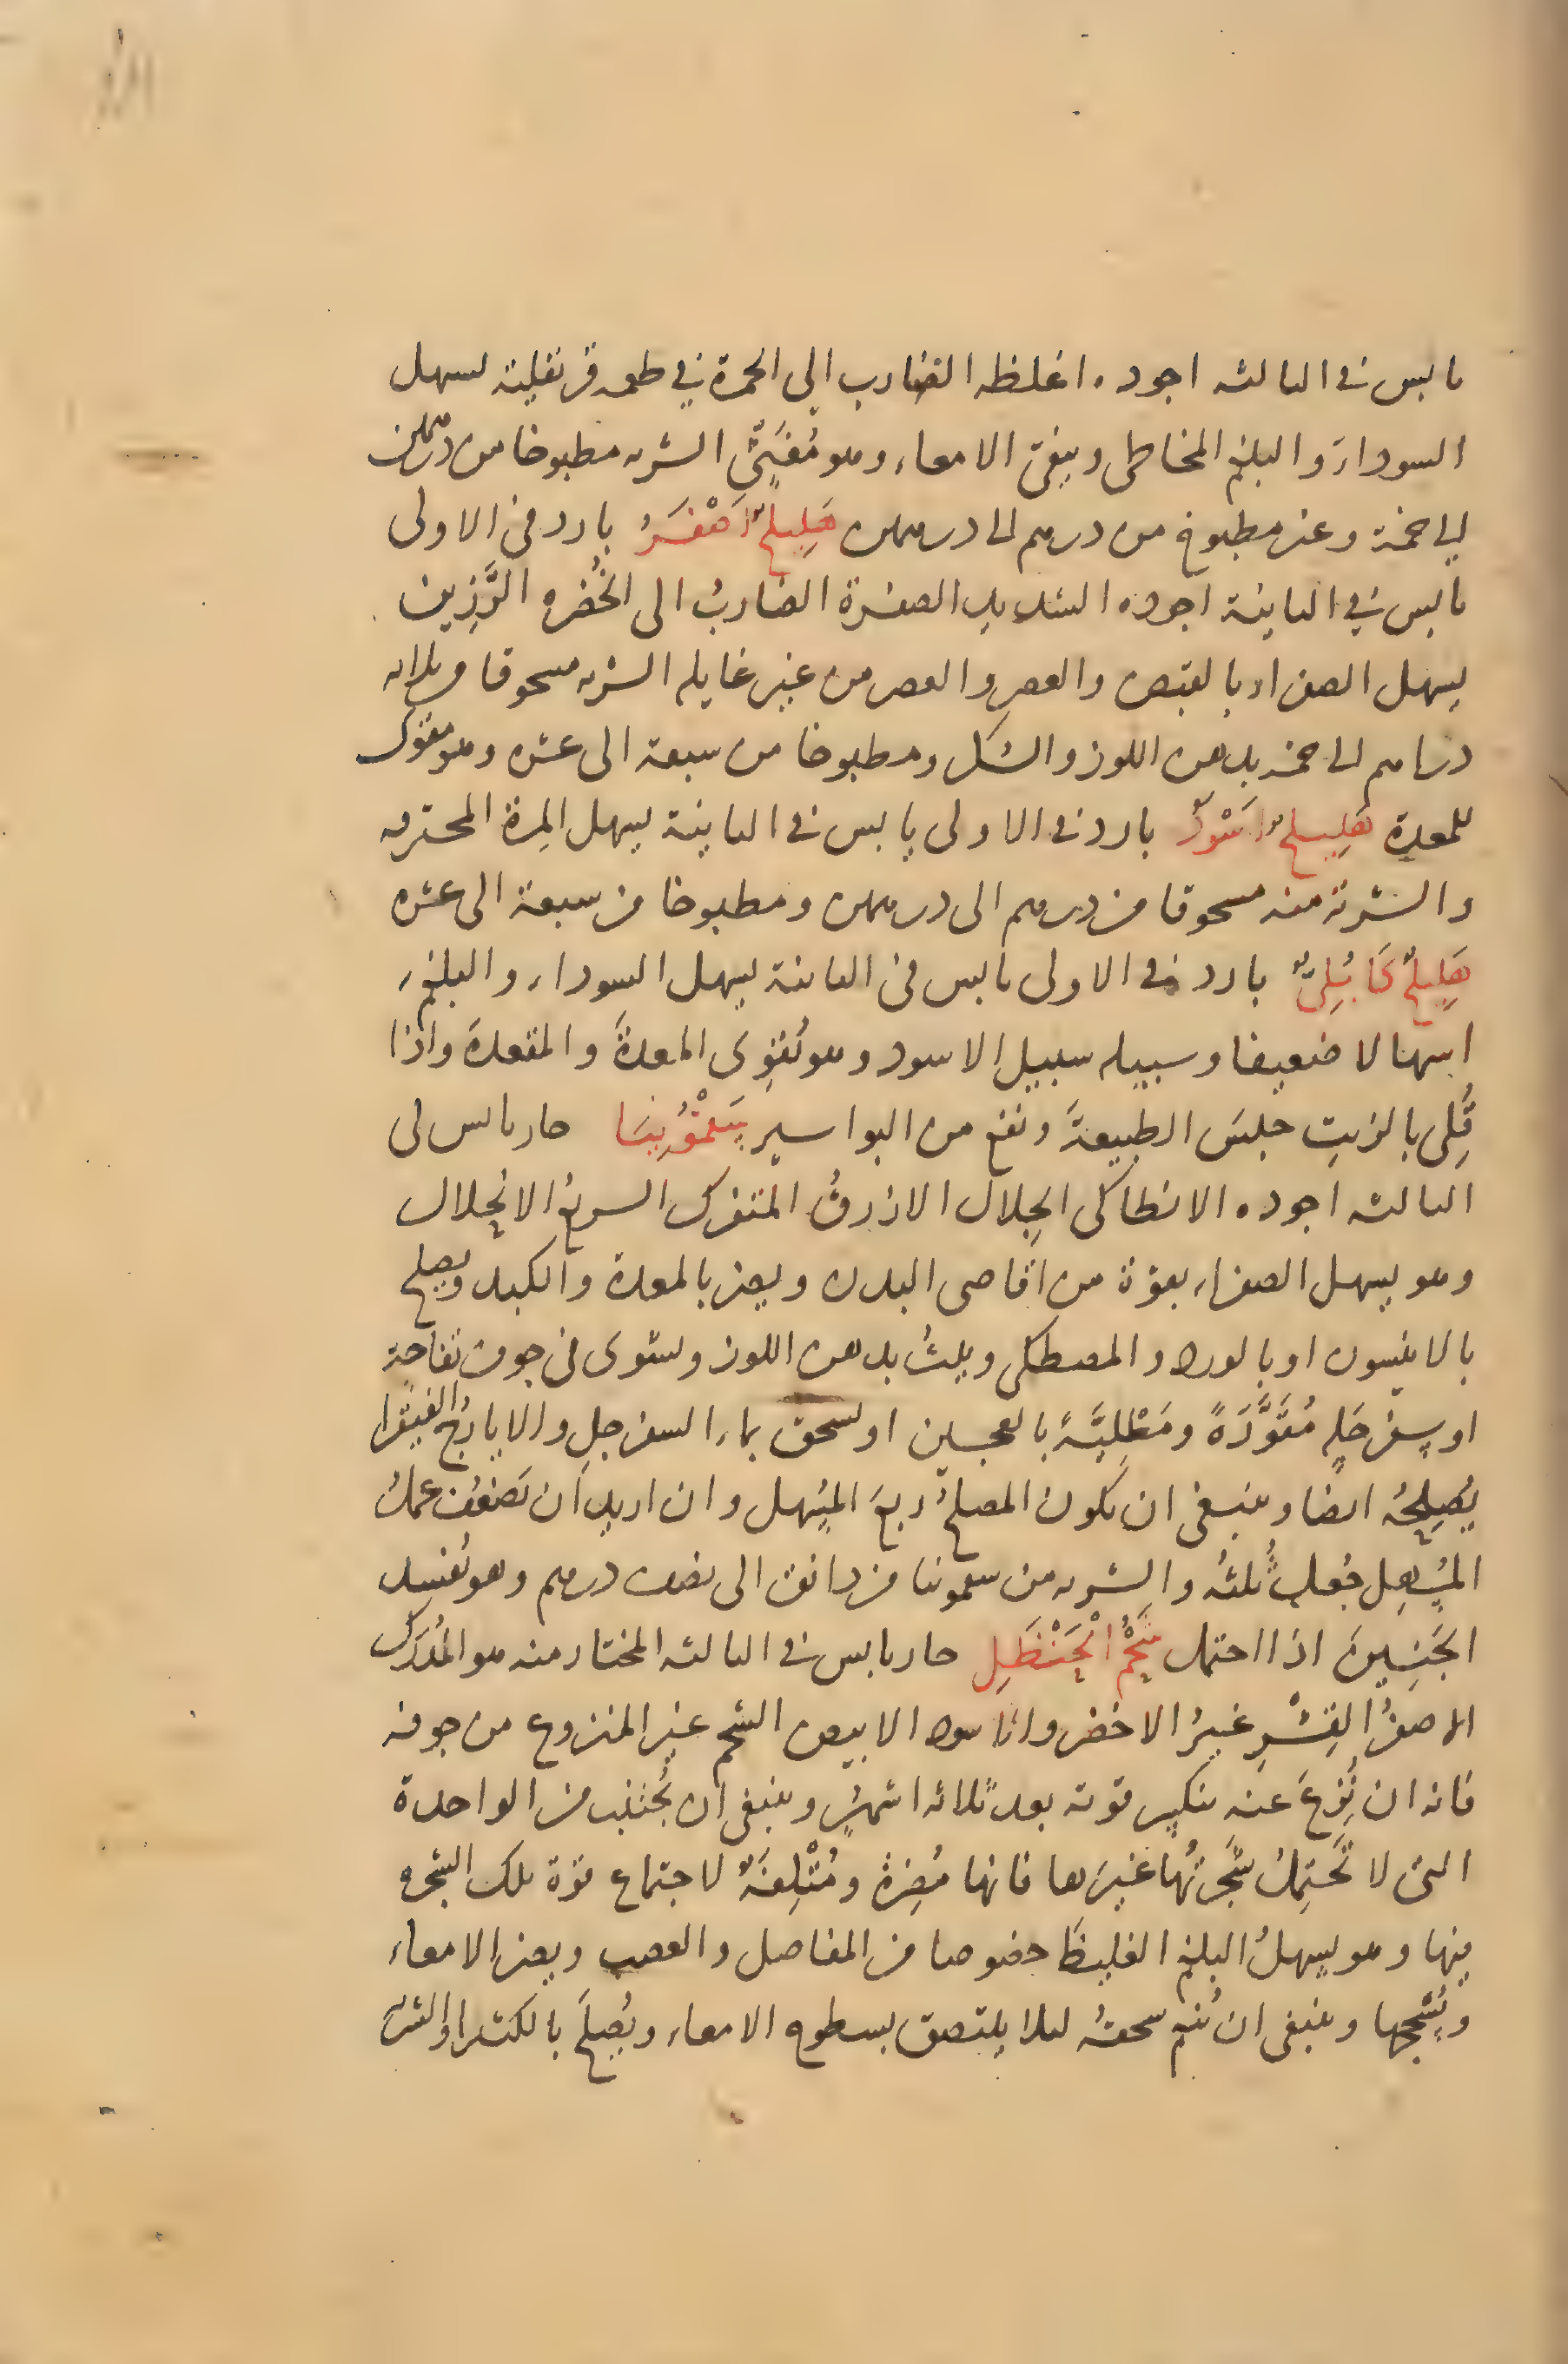 يابس في الثالثة اجوده اغلظه الضارب الى الحمرة في طعمه قرنفلية يسهل
السوداء والبلغم المخاطي وينقي الامعاء وهو مُغَثِّي الشربه مطبوخا من درهمين
الى خمسة وغير مطبوخ من درهم الى درهمين هَلِيلجٌ اَصْفَرُ بارد في الاولى
يابس في الثانية اجوده الشديد الصفرة الضاربُ الى الخُضره الرَّزين
يسهل الصفراء بالقبض والعصرِ والعصر من غير غايله الشربه مسحوقا من ثلاثه
دراهم الى خمسه بدهن اللوز والسكر ومطبوخا من سبعة الى عشره وهو مقوي
للمعدة هَلِيلجٌ اَسْوَدُ بارد في الاولى يابس في الثانية يسهل المِرة المحترقه
والشربة منه مسحوقا من درهم الى درهمين ومطبوخا من سبعة الى عشره
هَلِيلجٌ كَابُلِيٌّ بارد في الاولى يابس في الثانية يسهل السوداء والبلغم
اسهالا ضعيفا وسبيله سبيل الاسود وهو يُقوِّى المعدةَ والمقعدةَ واذا
قُلِى بالزيتِ حبسَ الطبيعةَ ونفع من البواسير سَقَمُونِيَا حار يابس في
الثالثه اجوده الانطاكى الجلال الازرقُ المتفرك السريعُ الانحلال
وهو يسهل الصفراء بقوة من اقاصى البدن ويضر بالمعدة والكبد ويصلح
بالانيسون او بالورد والمصطكى ويلتُّ بدهن اللوز ويشوى في جوف تفاحة
او سفرجلةٍ مُقَوَّرَةً ومَطْلِيَّةً بالعجين او يسحق بماء السفرجلِ والايارجُ الفيقرا
يُصلِحُه ايضا وينبغى ان يكون المصلحُ ربعَ المسْهل وان اريد ان يَضعُفَ عملُ
المُسهِل جُعل ثُلثَه والشربه من سقمونيا من دانق الى نصف درهم وهو يُفسِد
الجَنِينَ اذا احتمل شَحْمُ الْحَنْظَلِ حار يابس في الثالثه المختار منه هو المُدرك
الاصفرُ القِشْرِ غيرُ الاخضر والاسود الابيض الشحم غير المنزوع من جوفه
فانه ان نُزِعَ عنه ينكسر قوته بعد ثلاثه اشهُرٍ وينبغى ان يُجتنب من الواحدة
التى لا تَحْتمِلُ شَجَرتُها غيرَها فانها مُضِرةٌ ومُتْلِفَةٌ لاجتماع قوة تلك الشجره
فيها وهو يسهلُ البلغم الغليظَ خصوصا من المفاصل والعصب ويضر الامعاء
ويُسْحجها وينبغى ان يُنعم سحقهُ ليلا يلتصق بسطوح الامعاء ويُصْلَح بالكثيرا والشربة